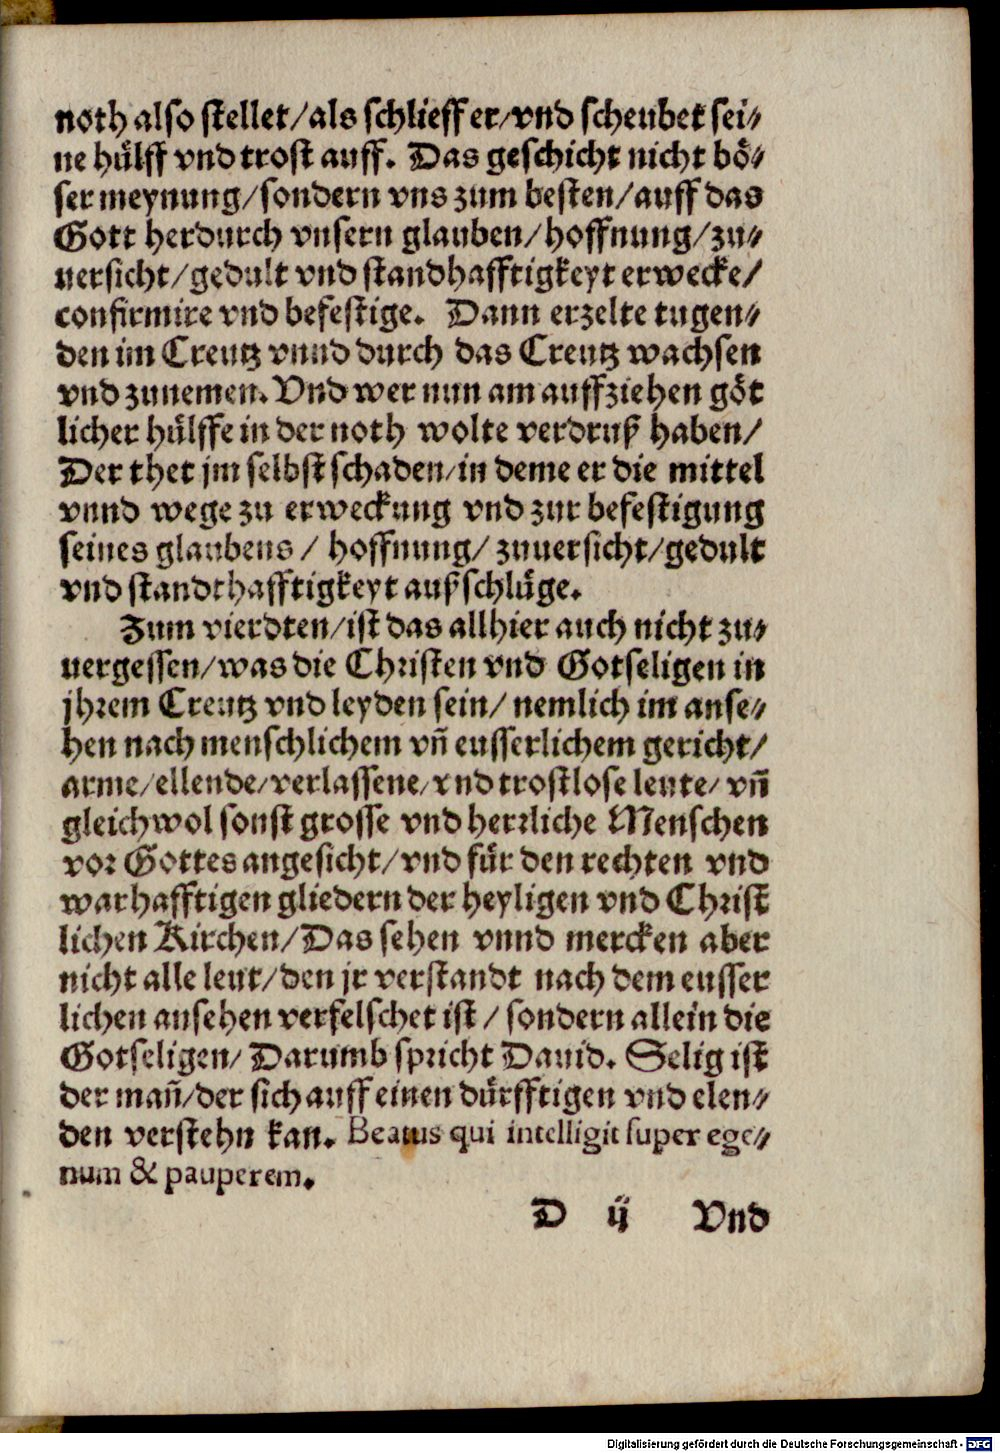 noth also stellet/als schlieff er/vnd scheubet sei⸗
ne hülff vnd trost auff. Das geschicht nicht bö⸗
ser meynung/sondern vns zum besten/auff das
Gott herdurch vnsern glauben/hoffnung/zu⸗
uersicht/gedult vnd standhafftigkeyt erwecke/
confirmire vnd befestige. Dann erzelte tugen⸗
den im Creutz vnnd durch das Creutz wachsen
vnd zunemen. Vnd wer nun am auffziehen göt
licher hülffe in der noth wolte verdruß haben/
Der thet jm selbst schaden/in deme er die mittel
vnnd wege zu erweckung vnd zur befestigung
seines glaubens / hoffnung/ zuuersicht/gedult
vnd standthafftigkeyt außschlüge.
Zum vierdten/ist das allhier auch nicht zu⸗
uergessen/was die Christen vnd Gotseligen in
jhrem Creutz vnd leyden sein/ nemlich im anse⸗
hen nach menschlichem vñ eusserlichem gericht/
arme/ellende/verlassene/vnd trostlose leute/ vñ
gleichwol sonst grosse vnd herrliche Menschen
vor Gottes angesicht/vnd für den rechten vnd
warhafftigen gliedern der heyligen vnd Christ
lichen Kirchen/Das sehen vnnd mercken aber
nicht alle leut/den jr verstandt nach dem eusser
lichen ansehen verfelschet ist / sondern allein die
Gotseligen/ Darumb spricht Dauid. Selig ist
der mañ/der sich auff einen dürfftigen vnd elen⸗
den verstehn kan. Beatus qui intelligit super ege⸗
num & pauperem.
D ij Vnd
Digitalisierung gefördert durch die Deutsche Forschungsgemeinschaft - DFG